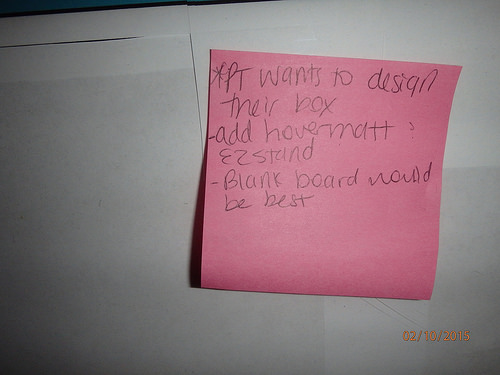 *PT wants to design
their box
-add hovermatt :
EZstand
-Blank board would
be best
02/10/2015